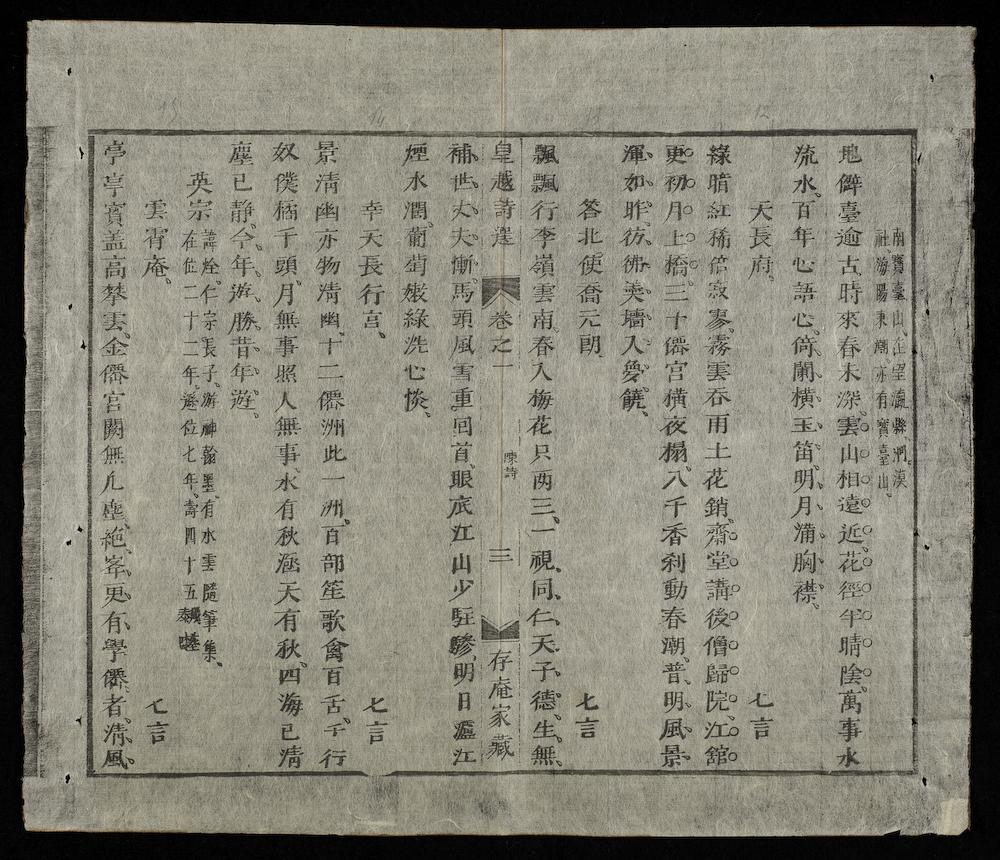 南寶臺山在望瀛縣洞漠
社海陽東潮亦有寶臺山
地僻臺逾古時來春未深雲山相遠近花徑半晴陰萬事水
流水百年心語心倚闌橫玉笛明月滿胸襟
天長府 七言
綠暗紅稀倍寂寥霧雲吞雨土花銷齋堂講後僧歸院江舘
更初月上橋三十僊宮橫夜榻八千香刹動春潮普明風景
渾如昨彷彿羮墻入夢饒
答北使喬元朗 七言
飄飄行李嶺雲南春入梅花只两三一視同仁天子德生無
皇越詩選 卷之一 陳詩 三 存庵家藏
補世丈夫慚馬頭風雪重回首眼底江山少駐驂明日瀘江
煙水濶葡萄嫰綠洗心惔
幸天長行宮 七言
景清幽亦物清幽十二僊洲此一洲百部笙歌禽百舌千行
奴僕橘千頭月無事照人無事水有秋涵天有秋四海已清
塵已静今年遊勝昔年遊
英宗
諱烇仁宗長子游神翰墨有水雲隨筆集
在位二十二年遜位七年壽四十五
雲霄庵 七言
亭亭寳盖高攀雲金僊宮闕無凡塵絕宰更有學僊者清風